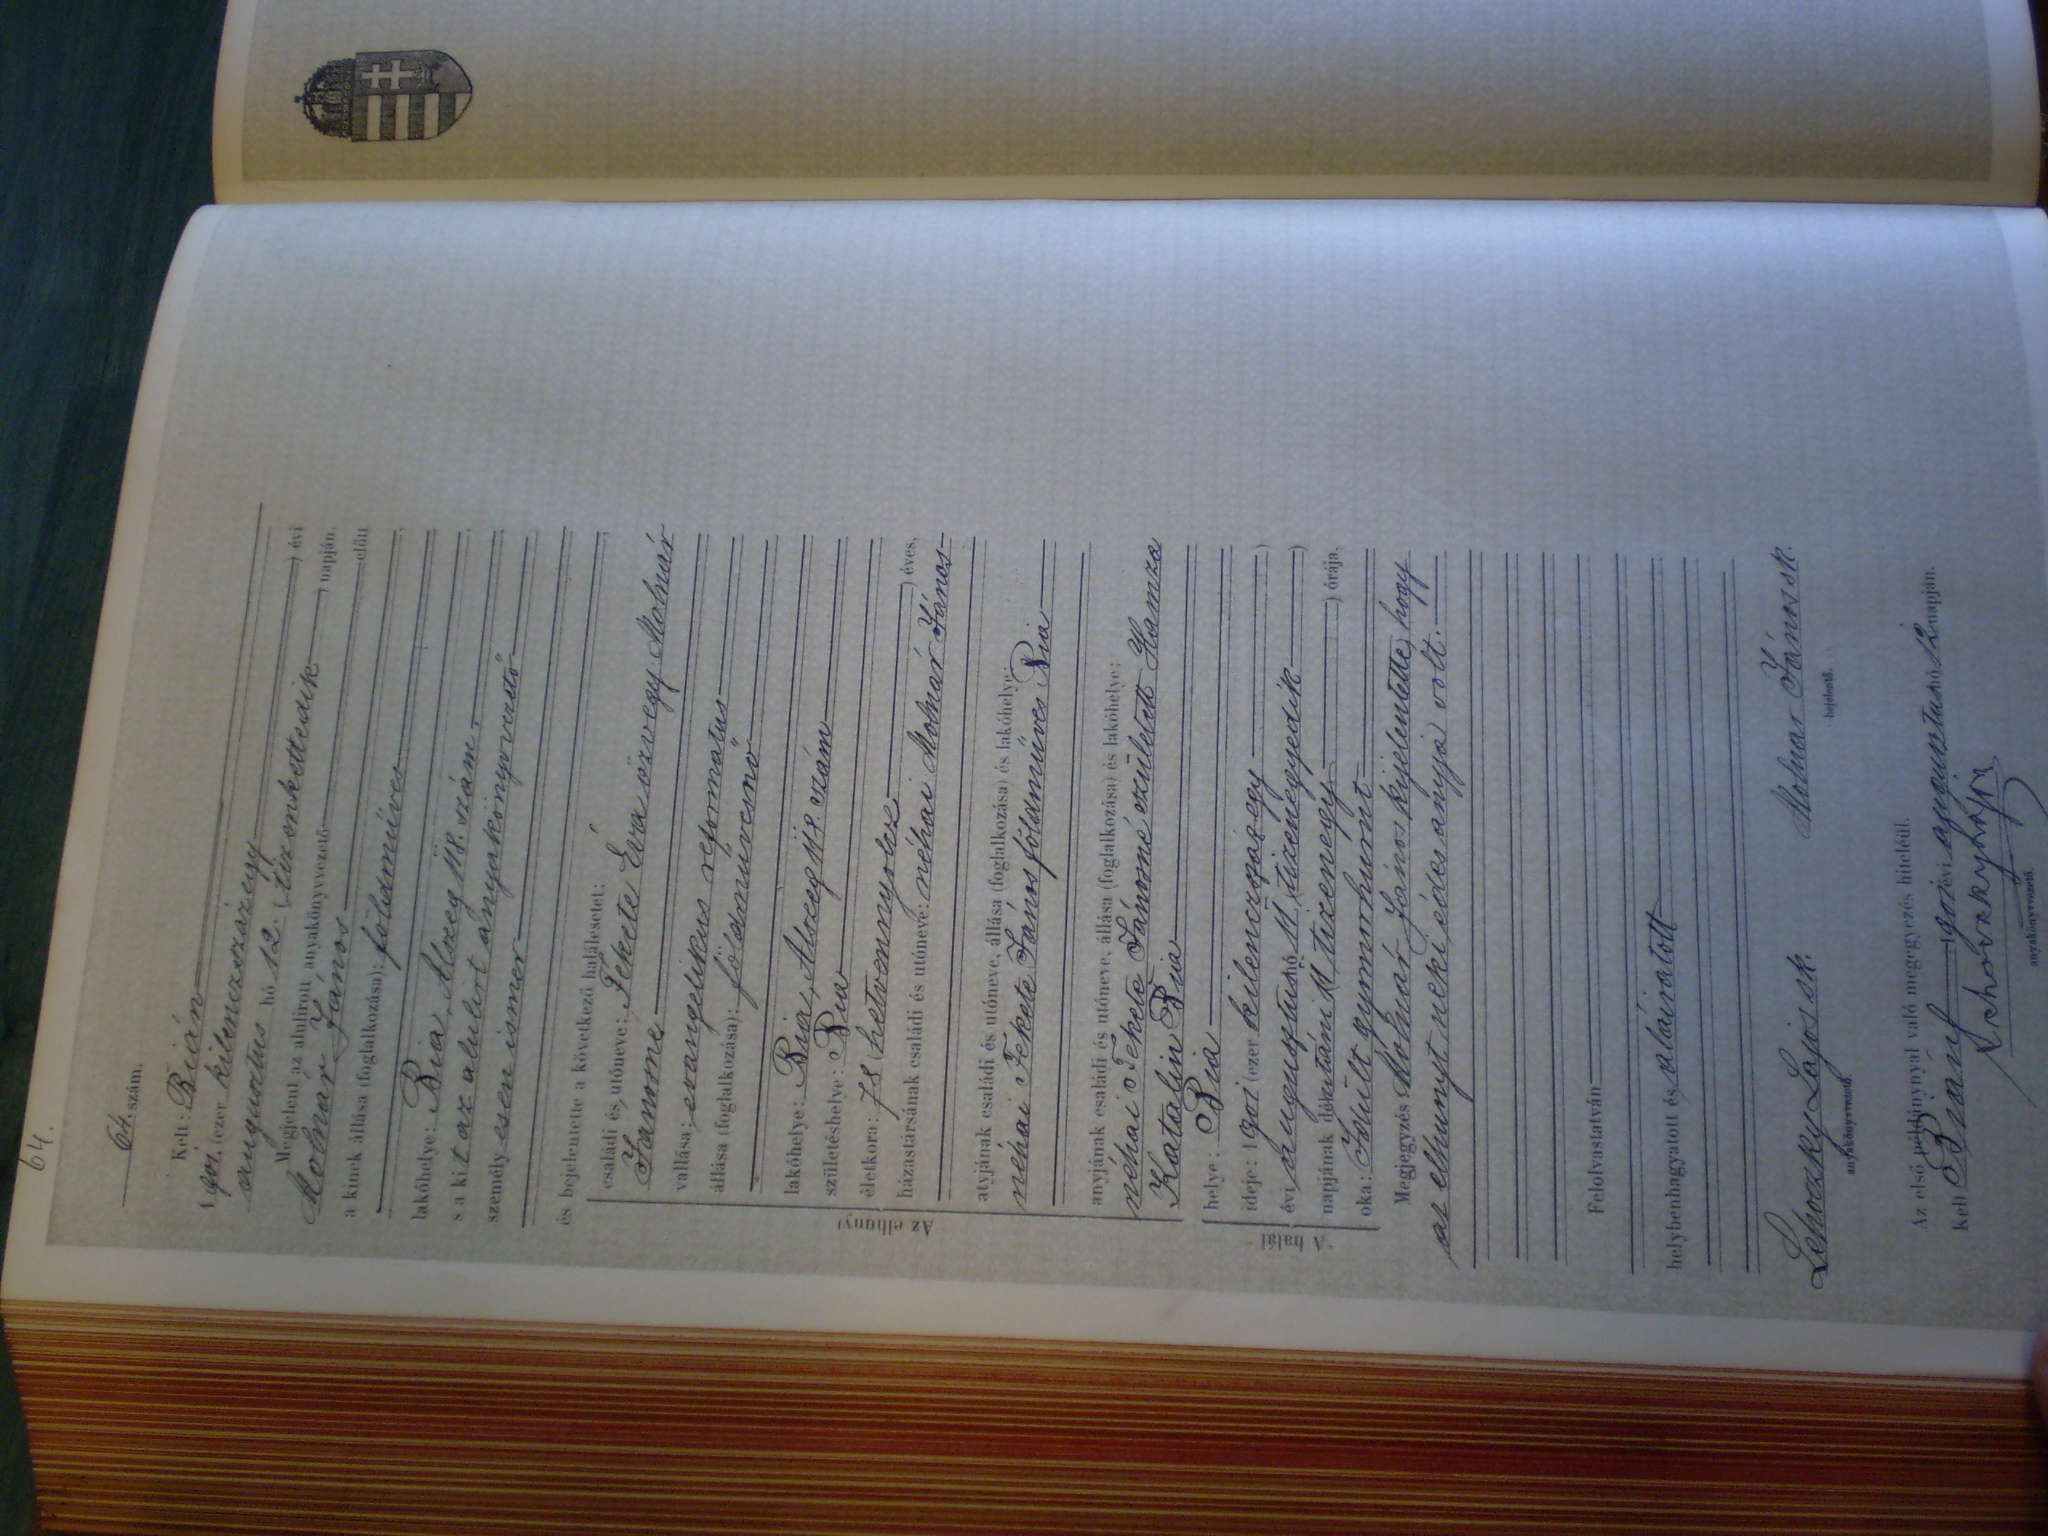 64.
64. szám.
Kelt: Bián
1901. (ezer kilenczszázegy
augusztus hó 12. (tizenkettedik) évi napján.
Megjelent az alulírott anyakönyvvezető előtt
Molnár János
a kinek állása (foglalkozása): földmüves
lakóhelye: Bia, Alszeg 118. szám.
s a kit az alulirt anyakönyvvezető
személyesen ismer
és bejelentette a következő halálesetet:
Az elhunyt
családi és utóneve: Fekete Éva özvegy Molnár
Jánosné
vallása: evangelikus reformatus
állása (foglalkozása): földmüvesnő
lakóhelye: Bia, Alszeg 118. szám
születéshelye: Bia
életkora: 78 (hetvennyolcz) éves,
házastársának családi és utóneve: néhai Molnár János
atyjának családi és utóneve, állása (foglalkozása) és lakóhelye:
néhai Fekete János földmüves Bia
anyjának családi és utóneve, állása (foglalkozása) és lakóhelye:
néhai Fekete Jánosné született Hamza
Katalin Bia
A halál
helye: Bia
ideje: 1901 (ezer kilenczszázegy)
évi augusztus hó 11 (tizenegyedik)
napjának délutáni 11 (tizenegy) órája,
oka: Idült gyomorhurut
Megjegyzés Molnár János kijelentette, hogy
az elhunyt neki édes anyja volt.
Felolvastatván
helybenhagyatott és aláiratott
Lehoczky Lajos sk. Molnar János sk.
anyakönyvvezető. bejelentő.
Az első példánynyal való megegyezés hiteléül.
Kelt Bián 1901 évi augusztus hó 12 napján.
Lehoczky Lajos
anyakönyvvezető.